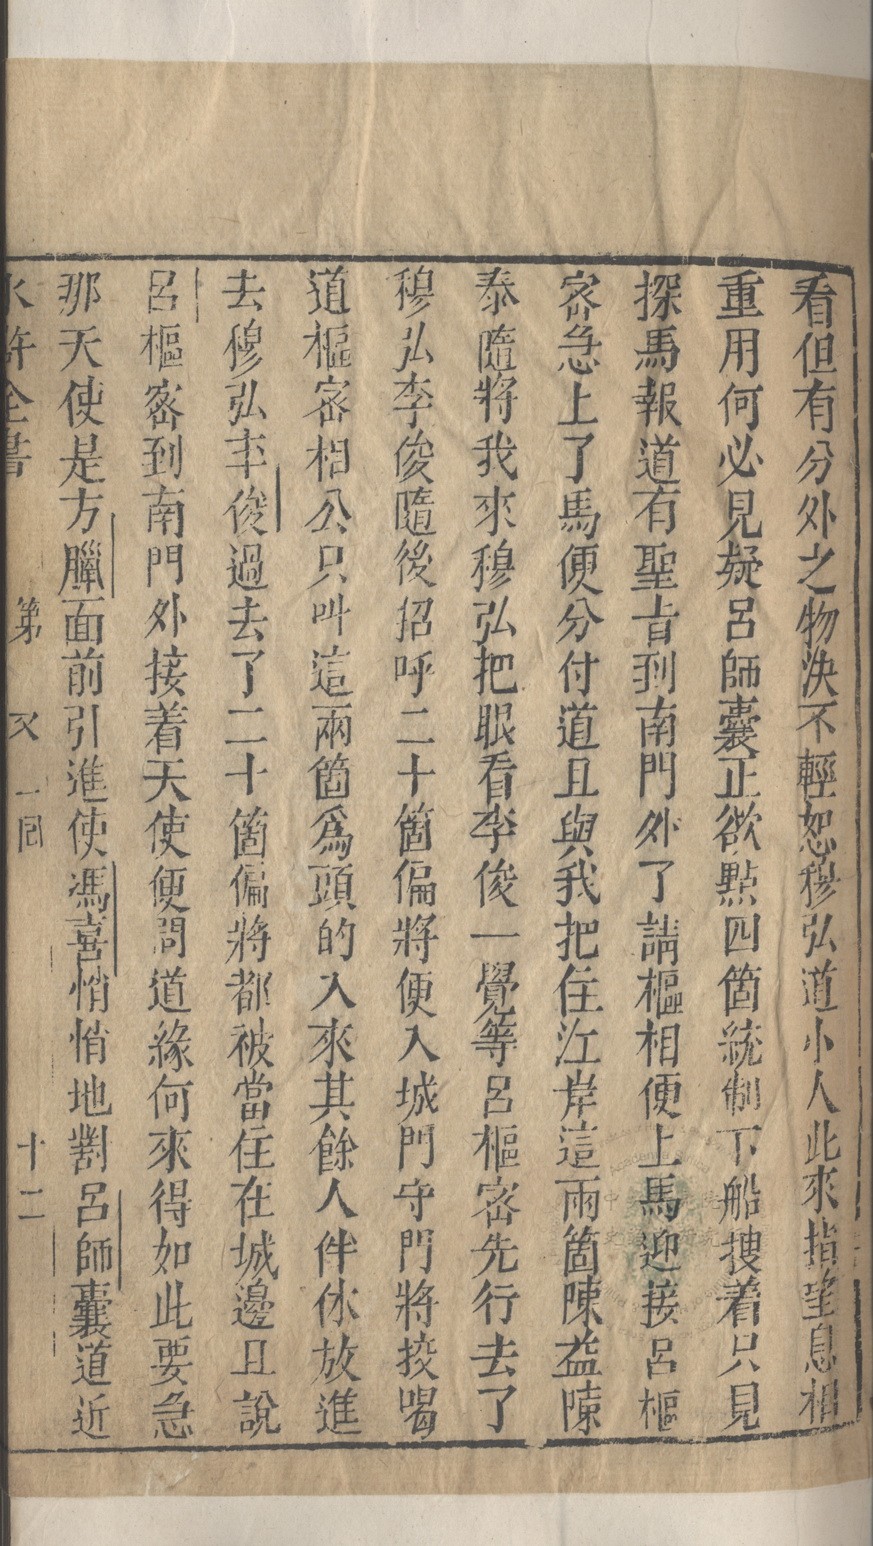 看但有分外之物決不輕恕穆弘道小人此來指望恩相
重用何必見疑呂師囊正欲點四箇統制下船搜着只見
探馬報道有聖旨到南門外了請樞相便上馬迎接呂樞
密急上了馬便分付道且與我把住江岸這兩箇陳益陳
泰隨將我來穆弘把眼看李俊一覺等呂樞密先行去了
穆弘李俊隨後招呼二十箇偏將便入城門守門將挍喝
道樞密相公只叫這兩箇爲頭的入來其餘人伴休放進
去穆弘李俊過去了二十箇偏將都被當住在城邊且說
呂樞密到南門外接着天使便問道緣何來得如此要急
那天使是方臘面前引進使馮喜悄悄地對呂師囊道近
水滸全書 第 一回 十二